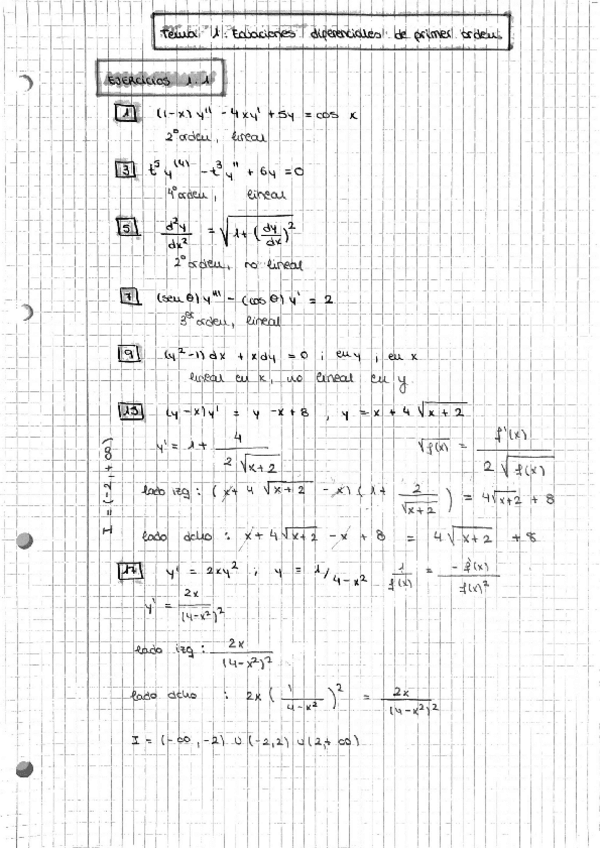 Tema 1: Ecuaciones diferenciales de primer orden.
EJERCICIOS 1.1
1 (1-x) y'' - 4xy' + 5y = cos x
2º orden, lineal
3 t⁵ y⁽⁴⁾ - t³ y'' + 6y = 0
4º orden, lineal
5 d²y/dx² = √(1 + (dy/dx)²)
2º orden, no lineal
7 (sen θ) y''' - (cos θ) y' = 2
3er orden, lineal
9 (y² - 1) dx + x dy = 0 ; en y , en x
lineal en x, no lineal en y
(y - x) y' = y - x + 8 , y = x + 4√(x+2)
y' = 1 + 4/(2√(x+2)) √f(x) = f'(x)/(2√f(x))
I = (-2, +∞)
lado izq : (x + 4√(x+2) - x) (1 + 2/√(x+2)) = 4√(x+2) + 8
lado dcho : x + 4√(x+2) - x + 8 = 4√(x+2) + 8
y' = 2xy² ; y = 1/4-x² 1/f(x) = -f'(x)/f(x)²
y' = 2x/(4-x²)²
lado izq : 2x/(4-x²)²
lado dcho : 2x (1/(4-x²))² = 2x/(4-x²)²
I = (-∞, -2) ∪ (-2, 2) ∪ (2, +∞)